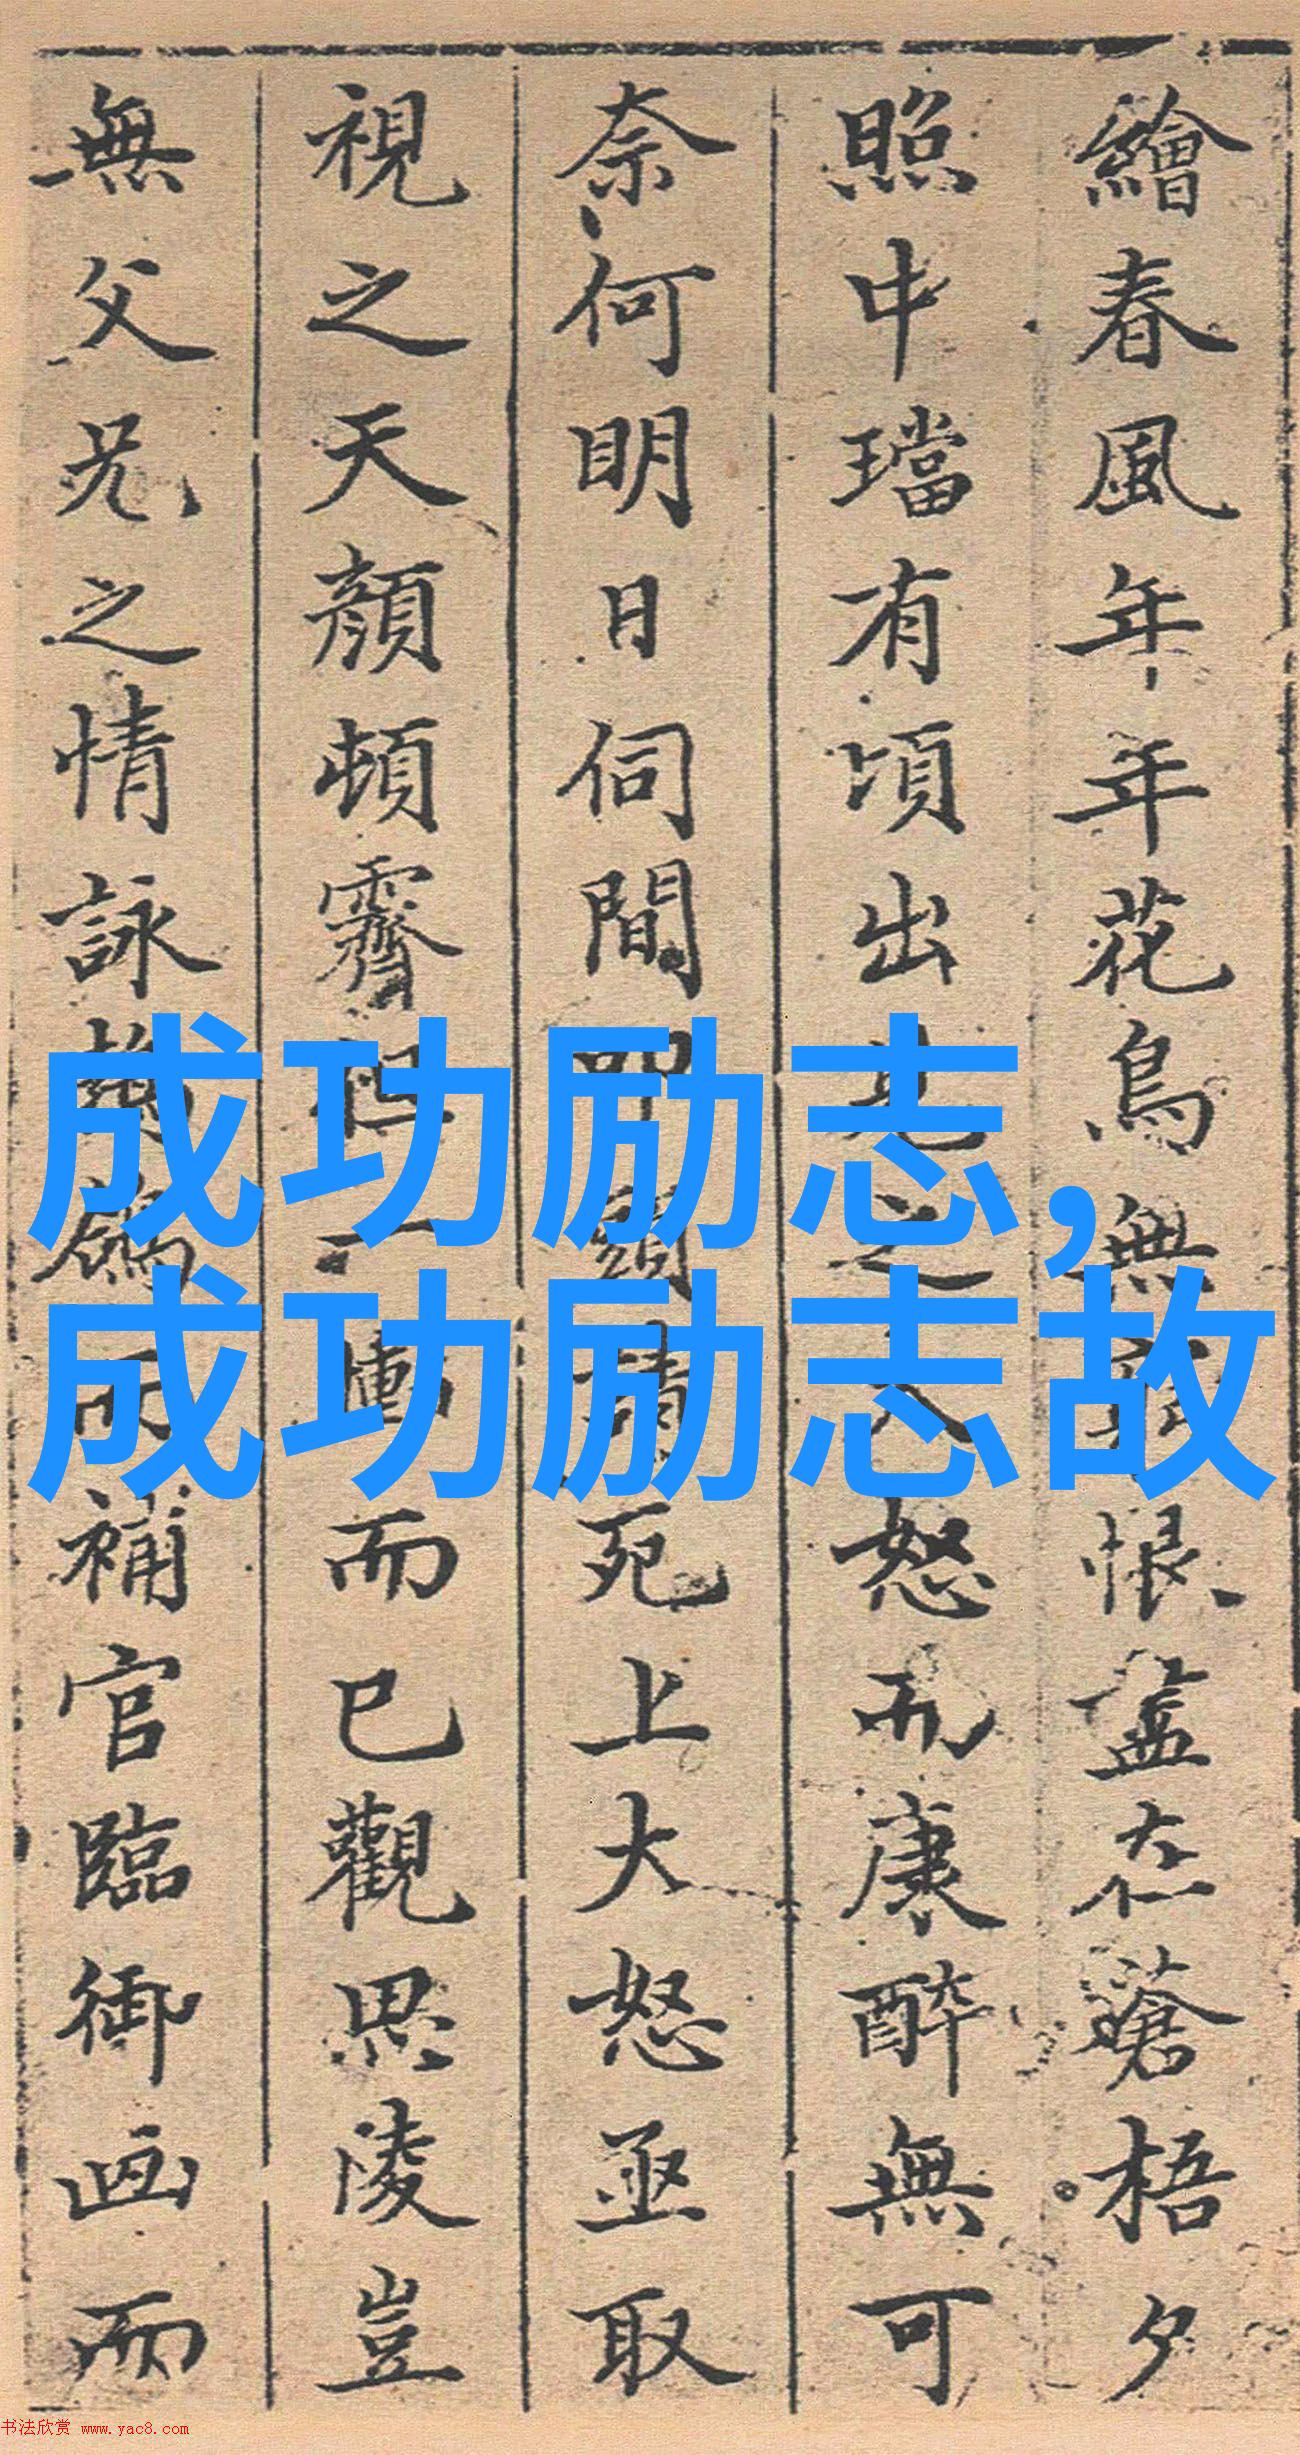 繪春風年年花鳥無 恨盡在蒼梧夕
照中璫有頃出 之 怒而康醉無可
奈何明日伺間 死上大怒亟取
視之天顏頓霽 一 而已觀思陵豈
無父兄之情詠 而補官臨御画而
成功励志,
成功励志故
书法欣赏 www.yac8.com